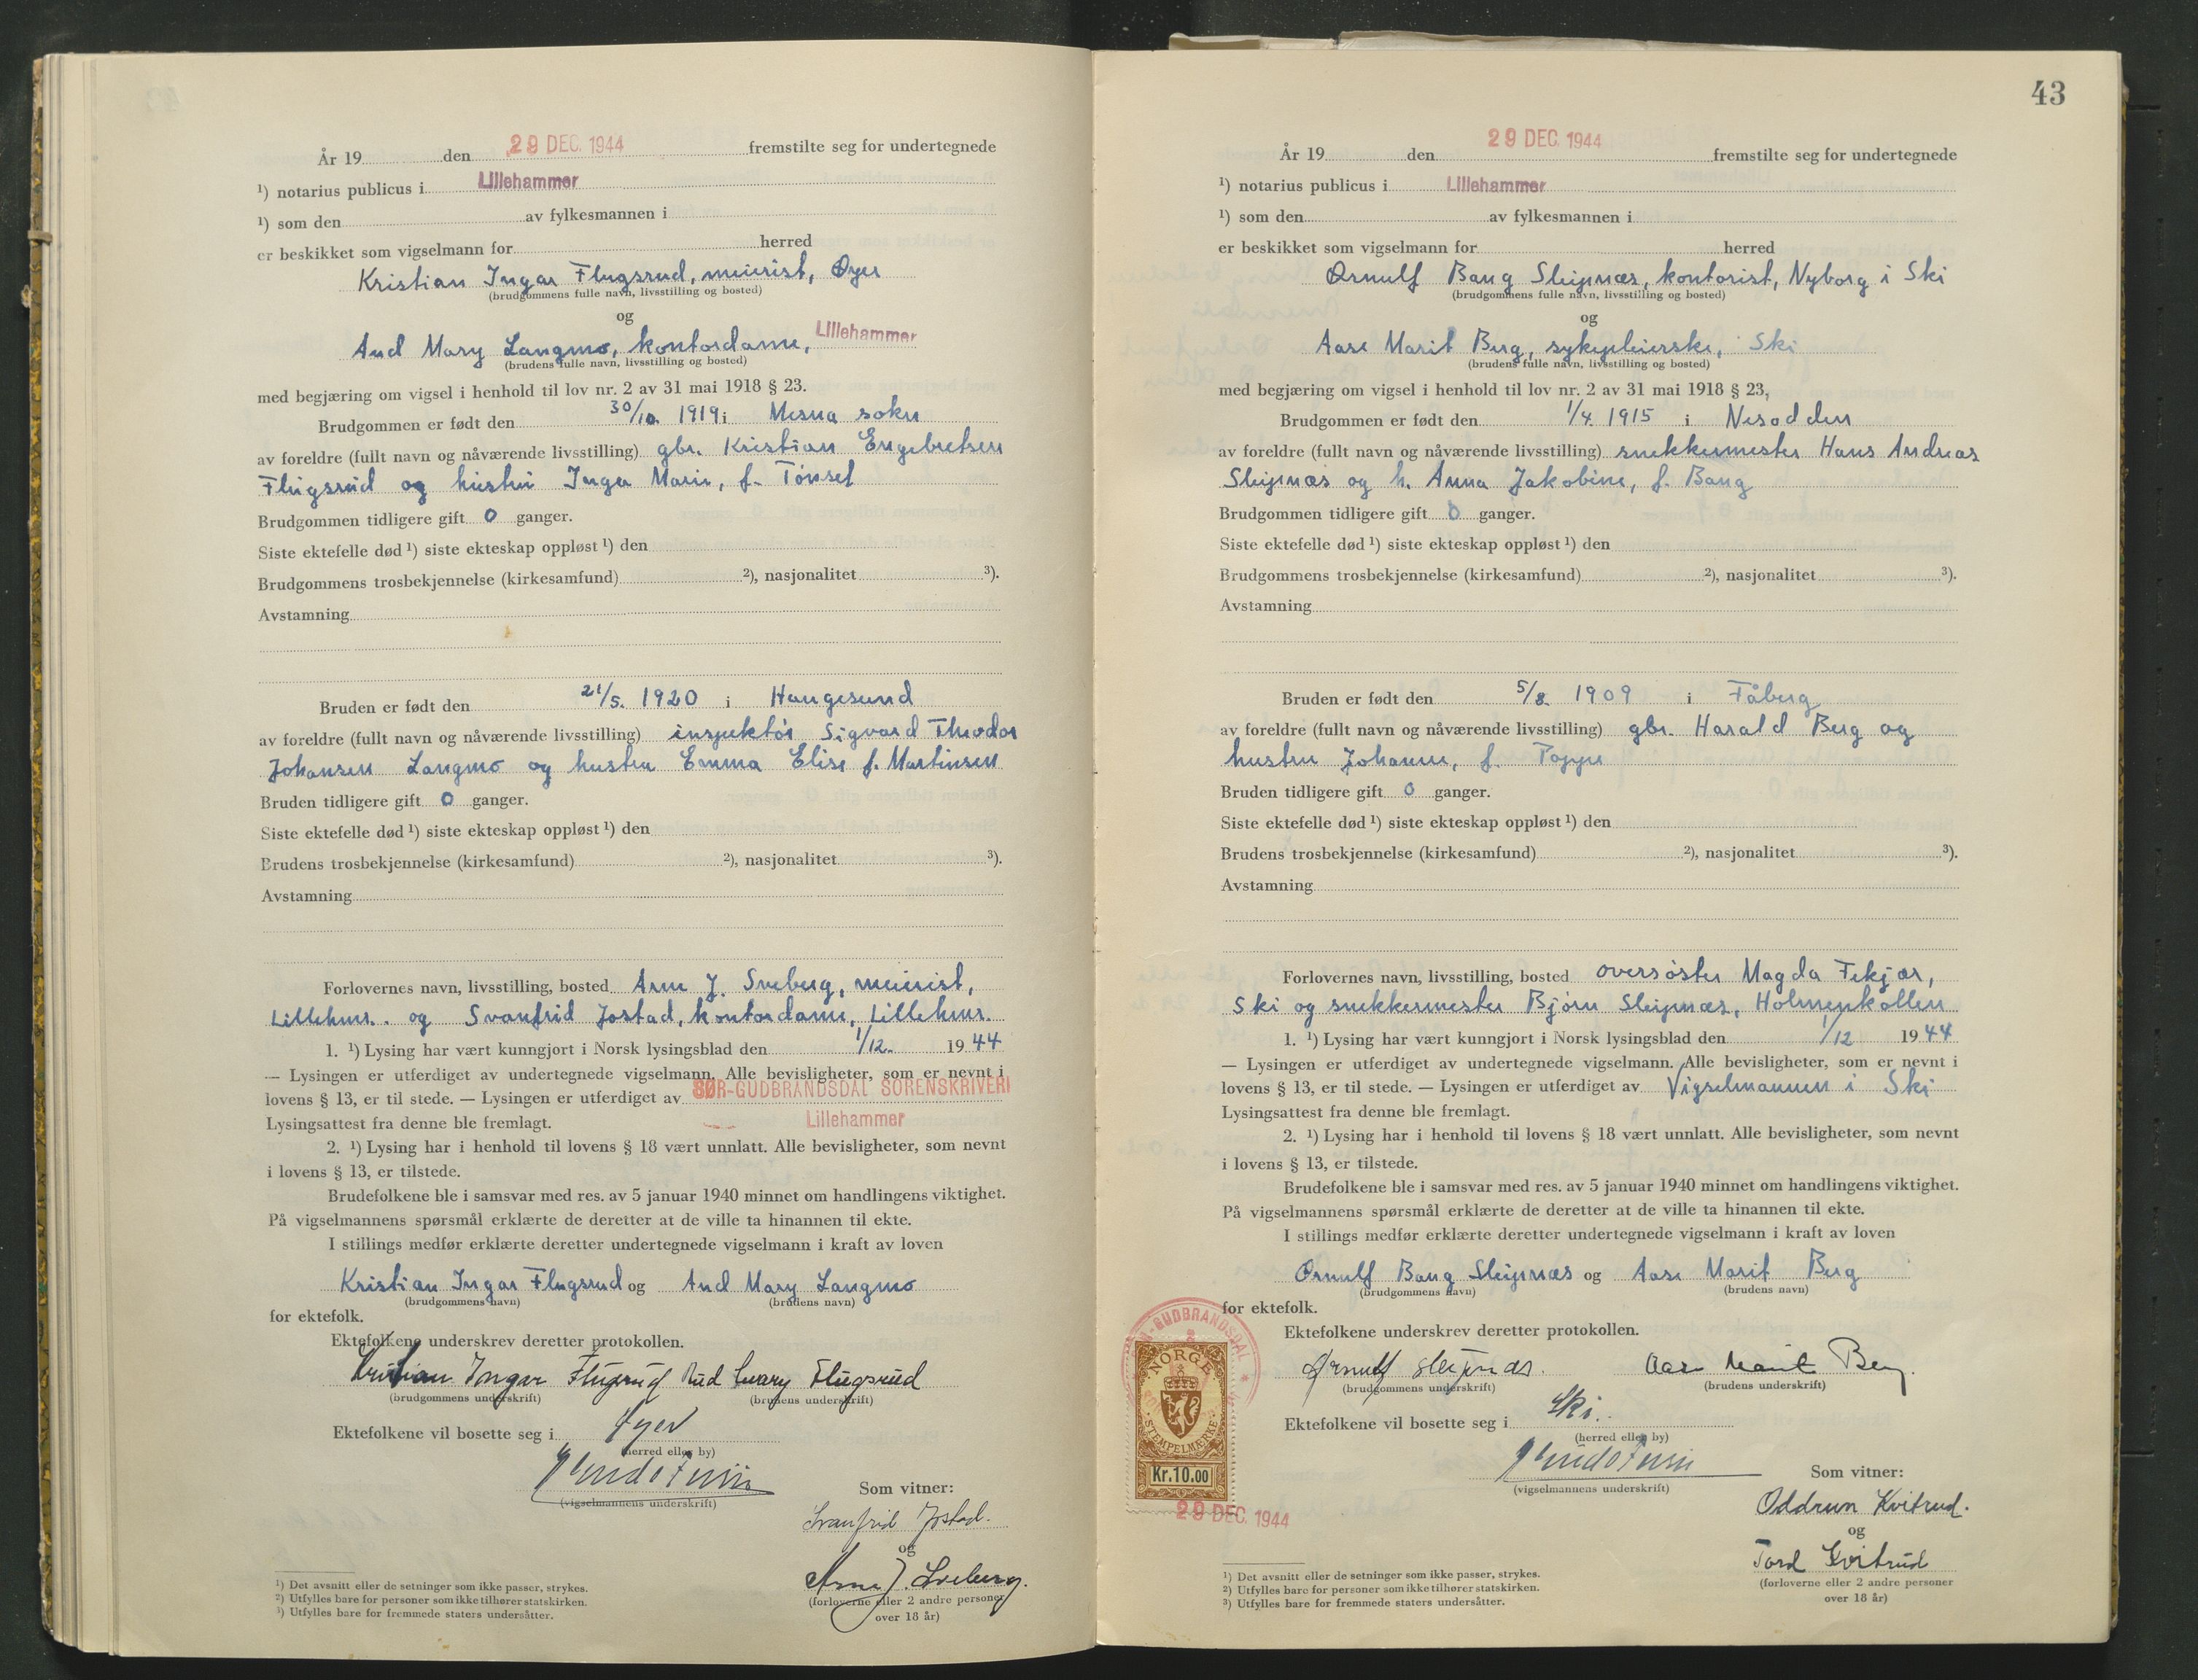 År 19 den 29 DEC. 1944 fremstilte seg for undertegnede
¹) notarius publicus i Lillehammer
¹) som den av fylkesmannen i
er beskikket som vigselmann for herred
Kristian Ingar Flugsrud, meierist, Øyer
(brudgommens fulle navn, livsstilling og bosted)
og
Aud Mary Langmo, kontordame, Lillehammer
(brudens fulle navn, livsstilling og bosted)
med begjæring om vigsel i henhold til lov nr. 2 av 31 mai 1918 § 23.
Brudgommen er født den 30/10. 1919 i Mesna sokn
av foreldre (fullt navn og nåværende livsstilling) gbr. Kristian Engebretsen
Flugsrud og hustru Inga Marie, f. Tønset
Brudgommen tidligere gift 0 ganger.
Siste ektefelle død ¹) siste ekteskap oppløst ¹) den
Brudgommens trosbekjennelse (kirkesamfund) ²), nasjonalitet ³).
Avstamning
Bruden er født den 21/5. 1920 i Haugesund
av foreldre (fullt navn og nåværende livsstilling) inspektør Sigvard Theodor
Johansen Langmo og hustru Emma Elise f. Martinsen
Bruden tidligere gift 0 ganger.
Siste ektefelle død ¹) siste ekteskap oppløst ¹) den
Brudens trosbekjennelse (kirkesamfund) ²), nasjonalitet ³).
Avstamning
Forlovernes navn, livsstilling, bosted Arne J. Sveberg, meierist,
Lillehmr. og Svanfrid Jostad, kontordame, Lillehmr.
1. ¹) Lysing har vært kunngjort i Norsk lysingsblad den 1/12. 1944
— Lysingen er utferdiget av undertegnede vigselmann. Alle bevisligheter, som er nevnt i
lovens § 13, er til stede. — Lysingen er utferdiget av SØR-GUDBRANDSDAL SORENSKRIVERI
Lysingsattest fra denne ble fremlagt. Lillehammer
2. ¹) Lysing har i henhold til lovens § 18 vært unnlatt. Alle bevisligheter, som nevnt
i lovens § 13, er tilstede.
Brudefolkene ble i samsvar med res. av 5 januar 1940 minnet om handlingens viktighet.
På vigselmannens spørsmål erklærte de deretter at de ville ta hinannen til ekte.
I stillings medfør erklærte deretter undertegnede vigselmann i kraft av loven
Kristian Ingar Flugsrud og Aud Mary Langmo
(brudgommens navn) (brudens navn)
for ektefolk.
Ektefolkene underskrev deretter protokollen.
Kristian Ingar Flugsrud Aud Mary Flugsrud
(brudgommens underskrift) (brudens underskrift)
Ektefolkene vil bosette seg i Øyer
(herred eller by)
(vigselmannens underskrift)
Som vitner:
Svanfrid Jostad.
og
Arne J. Sveberg.
(forloverne eller 2 andre personer
over 18 år)
¹) Det avsnitt eller de setninger som ikke passer, strykes.
²) Utfylles bare for personer som ikke tilhører statskirken.
³) Utfylles bare for fremmede staters undersåtter.
43
År 19 den 29 DEC. 1944 fremstilte seg for undertegnede
¹) notarius publicus i Lillehammer
¹) som den av fylkesmannen i
er beskikket som vigselmann for herred
Ørnulf Bang Sleipnæs, kontorist, Nyborg i Ski
(brudgommens fulle navn, livsstilling og bosted)
og
Aase Marit Berg, sykepleierske, Ski
(brudens fulle navn, livsstilling og bosted)
med begjæring om vigsel i henhold til lov nr. 2 av 31 mai 1918 § 23,
Brudgommen er født den 1/4. 1915 i Nesodden
av foreldre (fullt navn og nåværende livsstilling) snekkermester Hans Andreas
Sleipnæs og h. Anna Jakobine, f. Bang
Brudgommen tidligere gift 0 ganger.
Siste ektefelle død ¹) siste ekteskap oppløst ¹) den
Brudgommens trosbekjennelse (kirkesamfund) ²), nasjonalitet ³).
Avstamning
Bruden er født den 5/8. 1909 i Fåberg
av foreldre (fullt navn og nåværende livsstilling) gbr. Harald Berg og
hustru Johanne, f. Poppe
Bruden tidligere gift 0 ganger.
Siste ektefelle død ¹) siste ekteskap oppløst ¹) den
Brudens trosbekjennelse (kirkesamfund) ²), nasjonalitet ³).
Avstamning
Forlovernes navn, livsstilling, bosted oversøster Magda Fekjær,
Ski og snekkermester Bjørn Sleipnæs, Holmenkollen
1. ¹) Lysing har vært kunngjort i Norsk lysingsblad den 1/12 1944
— Lysingen er utferdiget av undertegnede vigselmann. Alle bevisligheter, som er nevnt i
lovens § 13, er til stede. — Lysingen er utferdiget av Vigselmannen i Ski
Lysingsattest fra denne ble fremlagt.
2. ¹) Lysing har i henhold til lovens § 18 vært unnlatt. Alle bevisligheter, som nevnt
i lovens § 13, er tilstede.
Brudefolkene ble i samsvar med res. av 5 januar 1940 minnet om handlingens viktighet.
På vigselmannens spørsmål erklærte de deretter at de ville ta hinannen til ekte.
I stillings medfør erklærte deretter undertegnede vigselmann i kraft av loven
Ørnulf Bang Sleipnæs og Aase Marit Berg
(brudgommens navn) (brudens navn)
for ektefolk.
Ektefolkene underskrev deretter protokollen.
Ørnulf Sleipnæs. Aase Marit Berg.
(brudgommens underskrift) (brudens underskrift)
Ektefolkene vil bosette seg i Ski.
(herred eller by)
(vigselmannens underskrift)
Som vitner:
Oddrun Kvitrud.
og
Tord Kvitrud
(forloverne eller 2 andre personer
over 18 år)
GUDBRANDSDAL
NORGE
STEMPELMERKE
Kr.10.00
29 DEC. 1944
¹) Det avsnitt eller de setninger som ikke passer, strykes.
²) Utfylles bare for personer som ikke tilhører statskirken.
³) Utfylles bare for fremmede staters undersåtter.